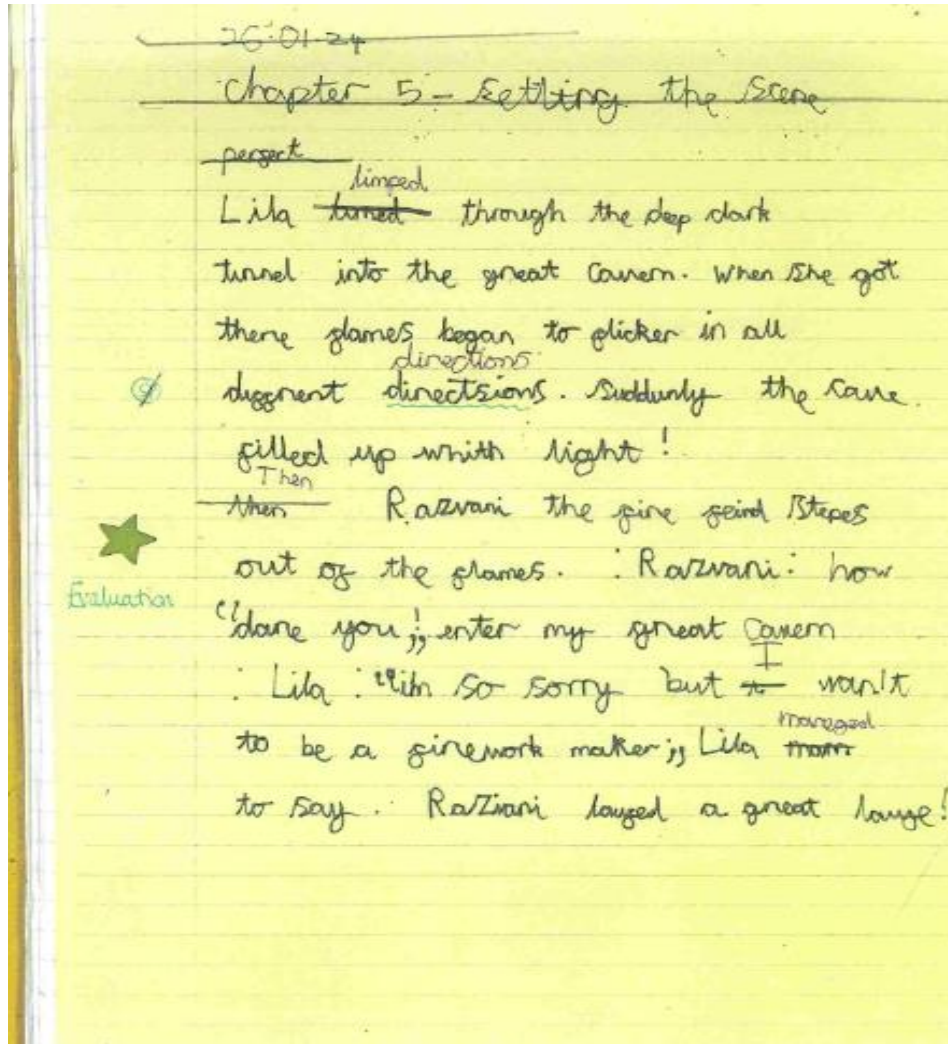 26.01.24
Chapter 5 - Setting the Scene
limped
Lila through the deep dark
tunnel into the great cavern. When she got
there flames began to flicker in all
directions
diffrent directsions. Suddunly the cave
filled up whith light!
Then
then Razvani the fire feind Stepes
out of the flames. : Razvani : how
Evaluation
"dare you!" enter my great Cavern
I
: Lila : "im so sorry but wan't
maneged
to be a firework maker" Lila
to say. Razvani lauged a great lauge!